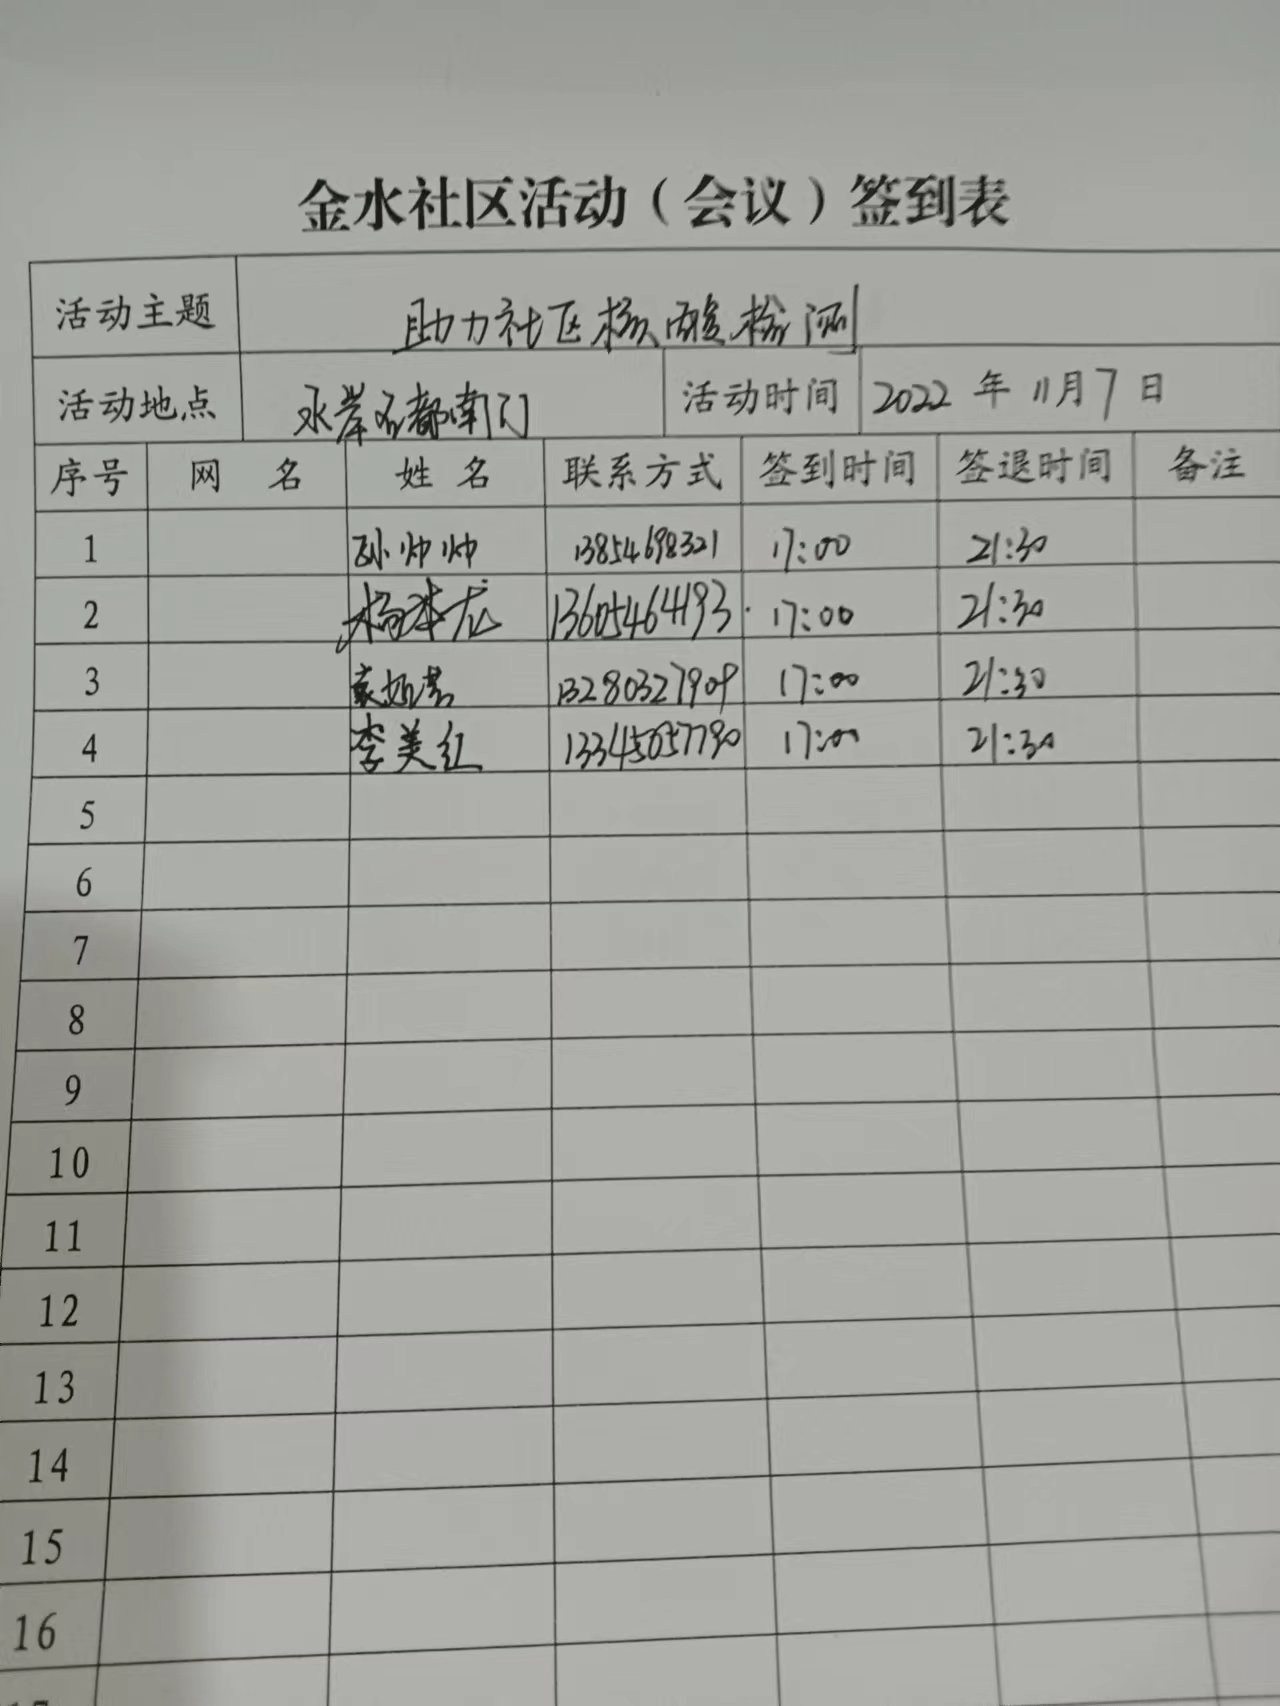 金水社区活动（会议）签到表
活动主题 助力社区核酸检测
活动地点 水岸名都南门 活动时间 2022 年 11月7日
序号 网 名 姓 名 联系方式 签到时间 签退时间 备注
1 孙帅帅 13854698321 17:00 21:30
2 杨本龙 13605464193 17:00 21:30
3 13280327909 17:00 21:30
4 李美红 13345057790 17:00 21:30
5
6
7
8
9
10
11
12
13
14
15
16